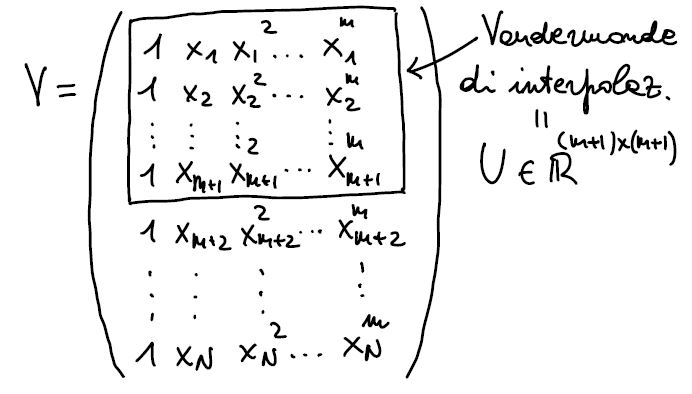 V = ( 1 x₁ x₁² ... x₁ᵐ
1 x₂ x₂² ... x₂ᵐ
⋮ ⋮ ⋮ ⋮
1 xₘ₊₁ xₘ₊₁² ... xₘ₊₁ᵐ
1 xₘ₊₂ xₘ₊₂² ... xₘ₊₂ᵐ
⋮ ⋮ ⋮ ⋮
1 x_N x_N² ... x_Nᵐ )
Vandermonde
di interpolaz.
=
U ∈ ℝ^(m+1)×(m+1)